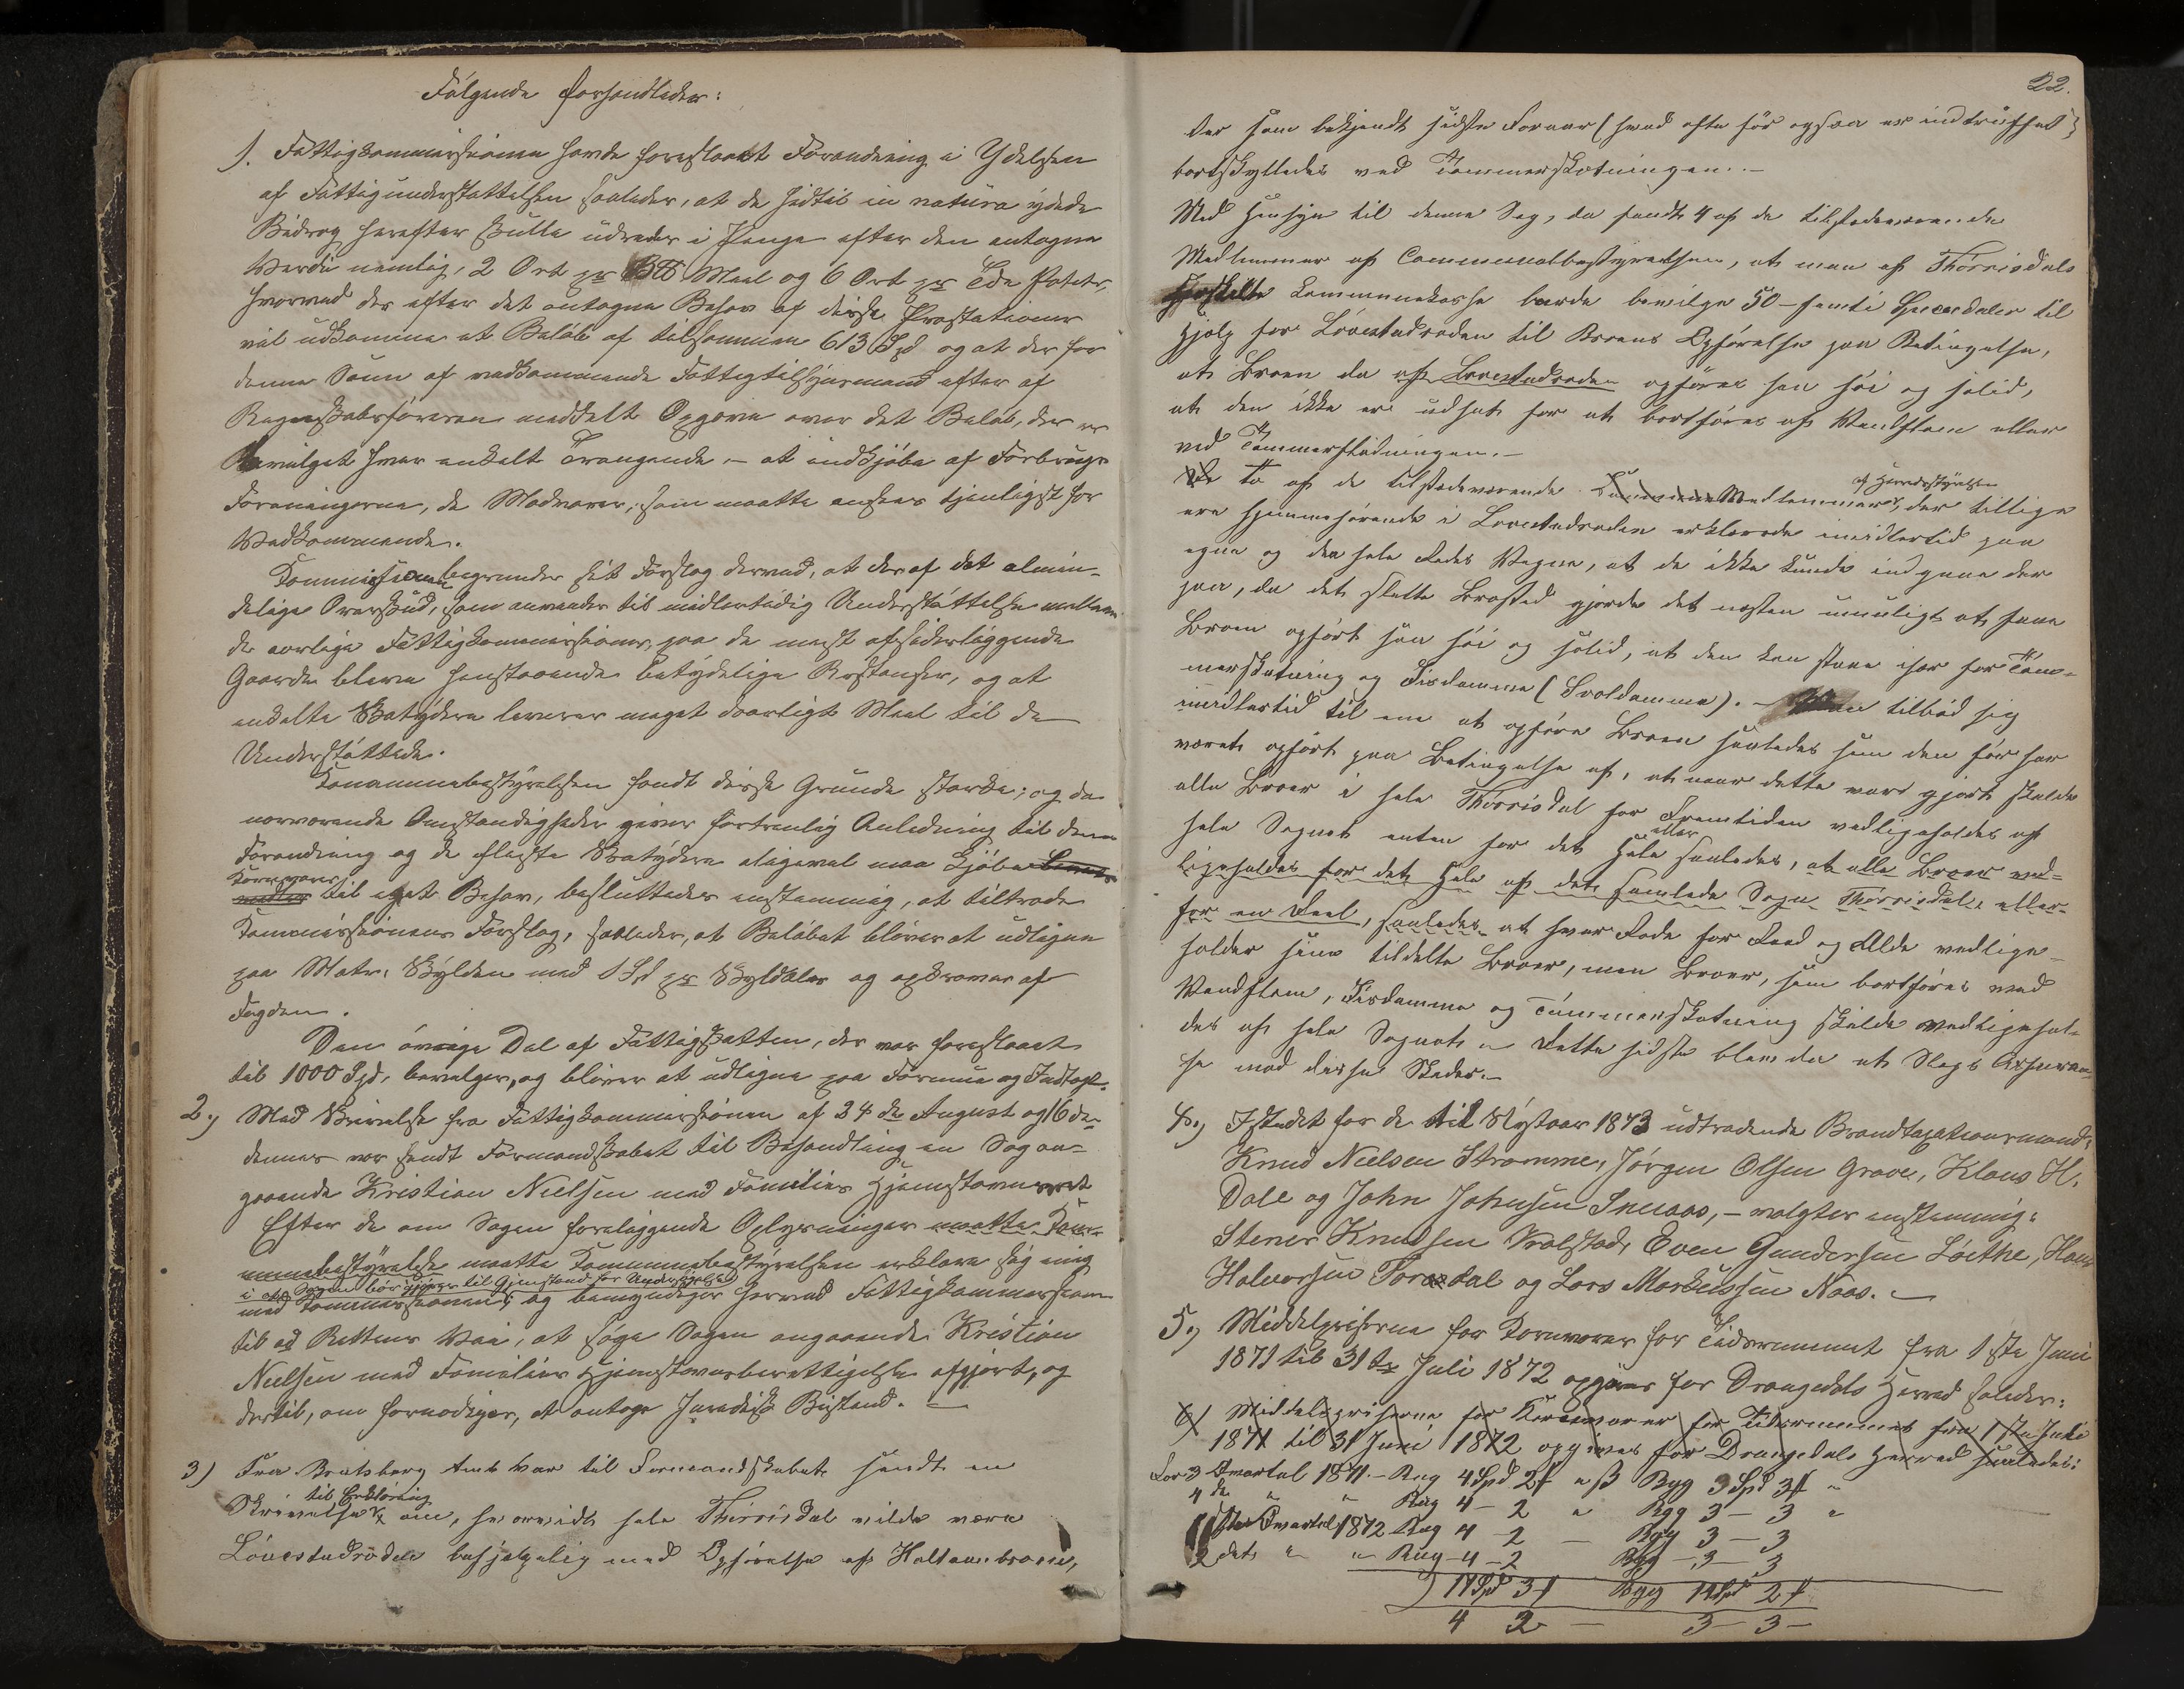 Følgende forhandledes:
1. Fattigkommissionen havde foreslaaet Forandring i Ydelsen
af Fattigunderstøttelsen saaledes, at de hidtil in natura ydede
Bidrag herefter skulle udredes i Penge efter den antagne
Værdi nemlig, 2 Ort pr Mæl og 6 Ort pr Tde Poteter,
hvorved der efter det antagne Behov af disse Præstationer
vil udkomme et Beløb af tilsammen 613 Spd og at der for
denne Sum af vedkommende Fattigtilsynsmand efter af
Regnskabsføreren meddelt Opgave over det Beløb, der er
bevilget hver enkelt Trængende – at indkjøbe af Forbrugs-
foreningerne, de Madvarer, som maatte ansees tjenligst for
Vedkommende.
Kommissionen begrunder sit Forslag derved, at der af det almin-
delige Overskud, som anvendes til midlertidig Understøttelse mellem
de aarlige Fattigkommissioner, paa de mest afsidesliggende
Gaarde bleve henstaaende betydelige Restanser, og at
enkelte Skatydere leverer meget daarligt Meel til de
Understøttede.
Kommunebestyrelsen fandt disse Grunde stærke; og da
nærværende Omstændigheder giver fortrinlig Anledning til denne
Forandring og de fleste Skatydere alligevel maa kjøbe
Kornvarer
til eget Behov, besluttedes enstemmig, at tiltræde
Kommissionens Forslag, saaledes, at Beløbet bliver at udligne
paa Matr. Skylden med 1 Spd pr Skylddaler og opkræves af
Fogden.
Den øvrige Del af Fattigskatten, der var foreslaaet
til 1000 Spd, bevilges, og bliver at udligne paa Formue og Indtægt.
2.) Med Skrivelse fra Fattigkommissionen af 24de August og 16de
dennes var sendt Formandskabet til Behandling en Sag an-
gaaende Kristian Nielsen med Families Hjemstavnsret
Efter de om Sagen foreliggende Oplysninger maatte Kom-
munebestyrelse maatte Kommunebestyrelsen erklære sig enig
i at Sagen bør gjøres til Gjenstand for Undersøgelse
med Kommissionen, og bemyndiger herved Fattigkommissionen
til ad Rettens Vei, at søge Sagen angaaende Kristian
Nielsen med Families Hjemstavnsberettigelse afgjort, og
dertil, om fornødiges, at antage Juridisk Bistand. –
3) Fra Bratsberg Amt var til Formandskabet sendt en
til Erklæring
Skrivelse om, hvorvidt hele Thørrisdal vilde være
Lövestadroden behjælpelig med Opførelse af Holtanbroen,
22.
der som bekjendt sidste Foraar (hvad ofte før ogsaa er indtruffet)
bortskylledes ved Tømmerfløtningen. –
Med Hensyn til denne Sag, da fandt 4 af de tilstedeværende
Medlemmer af Communalbestyrelsen, at man af Thörrisdals
særskilte Kommunekasse burde bevilge 50 – femti Speciedaler til
Hjælp for Lövestadroden til Broens Opførelse paa Betingelse,
at Broen da af Lovestadroden opføres saa høi og solid,
at den ikke er udsat for at bortføres af Vandflom eller
ved Tømmerflødningen. –
De to af de tilstedeværende Kommune Medlemmer, der tillige
af Herredsstyrelsen
ere hjemmehørende i Lovestadroden erklærede imidlertid paa
egne og den hele Rodes Vegne, at de ikke kunde indgaae der
paa, da det slette Brosted gjorde det næsten umuligt at faae
Broen opført saa høi og solid, at den kan staae især for Töm-
merfløtning og Iisdamme (Svoldamme). – tilbød sig
imidlertid til om at opføre Broen saaledes som den før har
været opført paa Betingelse af, at naar dette var gjort skulde
alle Broer i hele Thörrisdal for Fremtiden vedligeholdes af
hele Sognet enten for det Hele saaledes, at alle Broer ved-
eller
ligeholdes for det Hele af det samlede Sogn Thörrisdal, eller
for en Deel, saaledes at hver Rode for Raad og Ælde vedlige-
holder sine tildelte Broer, men Broer, som bortføres med
Vandflom, Iisdamme og Tömmerfløtning skulde vedligehol-
des af hele Sognet – Dette sidste blev da et Slags Assuran-
se mod disse Skader. –
4.) Istedet for de til Nytaar 1873 udtrædende Brandtaxationsmænd,
Knud Nielsen Stromme, Jørgen Olsen Grave, Klaus H.
Dale og John Johnsen Snuaas, – valgtes enstemmig:
Stener Knudsen Vrålstad, Even Gundersen Löithe, Hans
Halvorsen Torsdal og Lars Markussen Naas. –
5.) Middelpriserne for Kornvarer for Tidsrummet fra 1ste Juni
1871 til 31te Juli 1872 opgives for Drangedals Herred saaledes:
6) Middelspriserne for Kornvarer for Tidsrummet fra 1ste Juli
1871 til 31 Juni 1872 opgives for Drangedals Herred saaledes:
For 3 Kvartal 1871. – Rug 4 Spd 2 ₰ " ß Byg 3 Spd 3 ₰ "
4de " " Rug 4 – 2 " Byg 3 – 3 "
1ste Kvartal 1872 Rug 4 – 2 – Byg 3 – 3
2det " " Rug – 4 – 2 Byg – 3 – 3
17 Spd 3 ₰ Byg 14 Spd 2 ₰
4 2 – 3 – 3 –